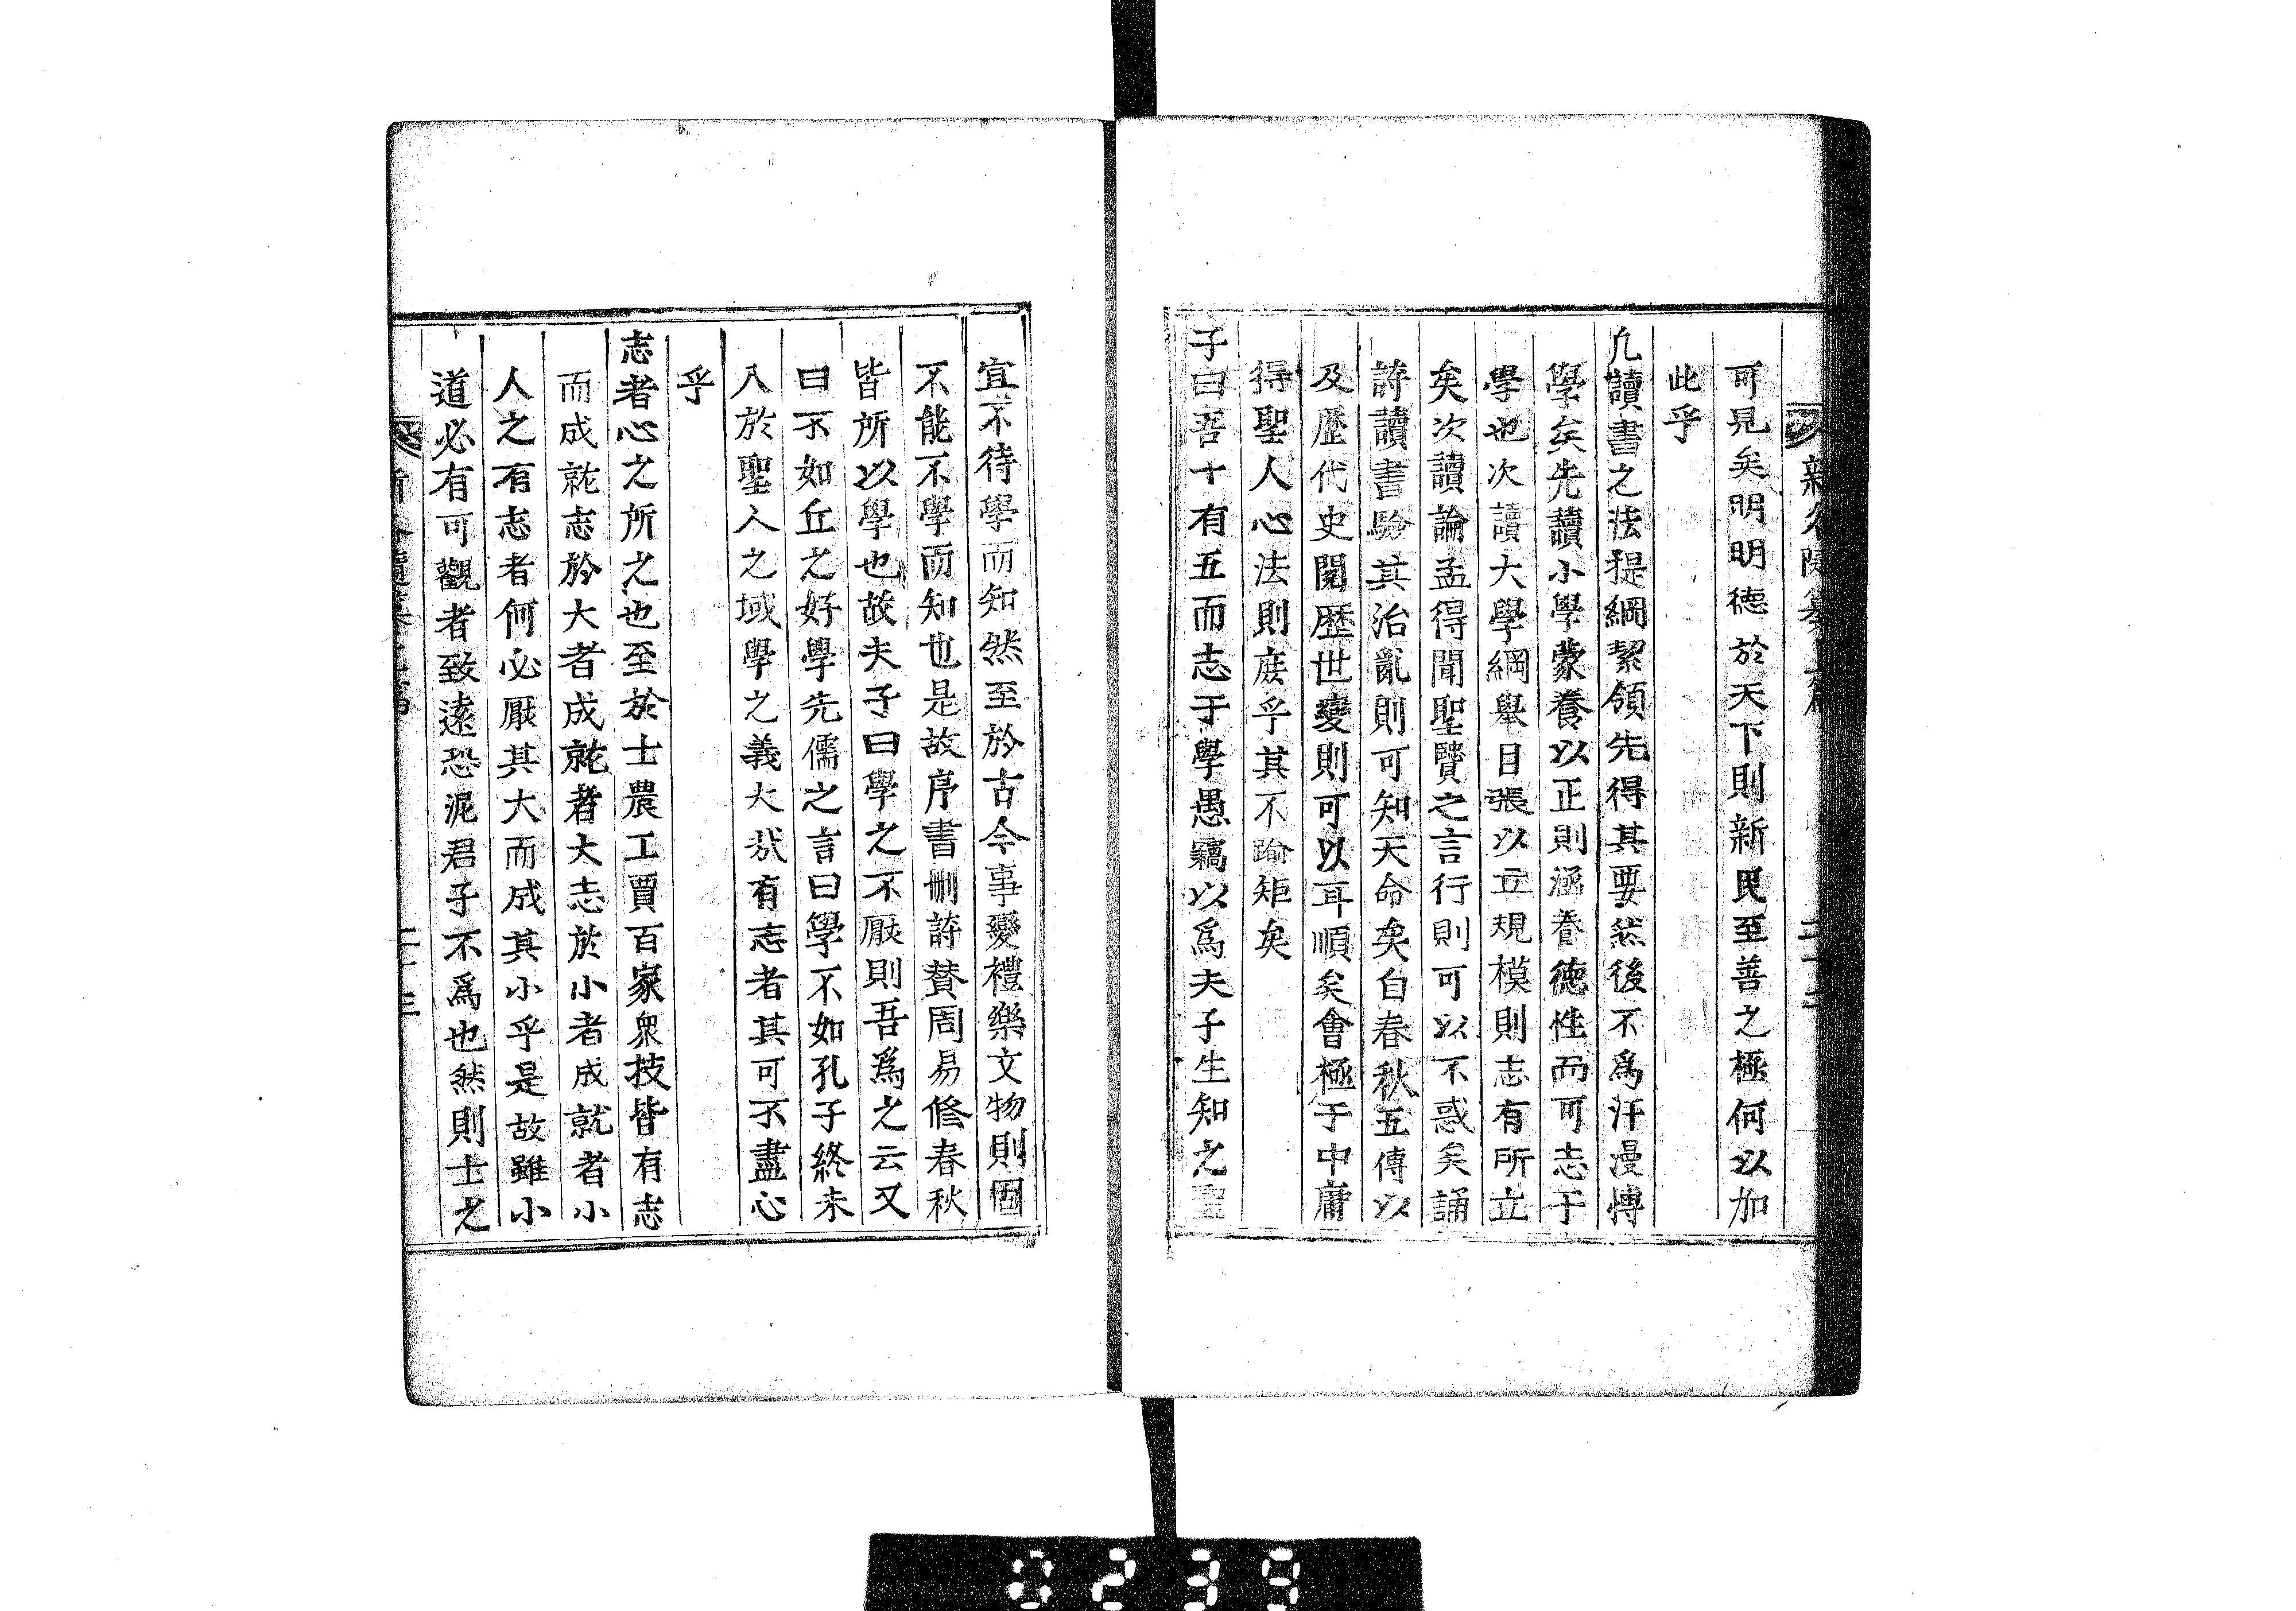 可見矣明明德於天下則新民至善之極何以加
此乎
凡讀書之法提綱絜領先得其要然後不爲汗漫博
學矣先讀小學蒙養以正則涵養德性而可志于
學也次讀大學綱舉目張以立規模則志有所立
矣次讀論孟得聞聖賢之言行則可以不惑矣誦
詩讀書驗其治亂則可知天命矣自春秋五傳以
及歷代史閱歷世變則可以耳順矣會極于中庸
得聖人心法則庶乎其不踰矩矣
子曰吾十有五而志于學愚竊以爲夫子生知之聖
宜不待學而知然至於古今事變禮樂文物則固
不能不學而知也是故序書刪詩賛周易修春秋
皆所以學也故夫子曰學之不厭則吾爲之云又
曰不如丘之好學先儒之言曰學不如孔子終未
入於聖人之域學之義大哉有志者其可不盡心
乎
志者心之所之也至於士農工賈百家衆技皆有志
而成就志於大者成就者大志於小者成就者小
人之有志者何必厭其大而成其小乎是故雖小
道必有可觀者致遠恐泥君子不爲也然則士之
0239